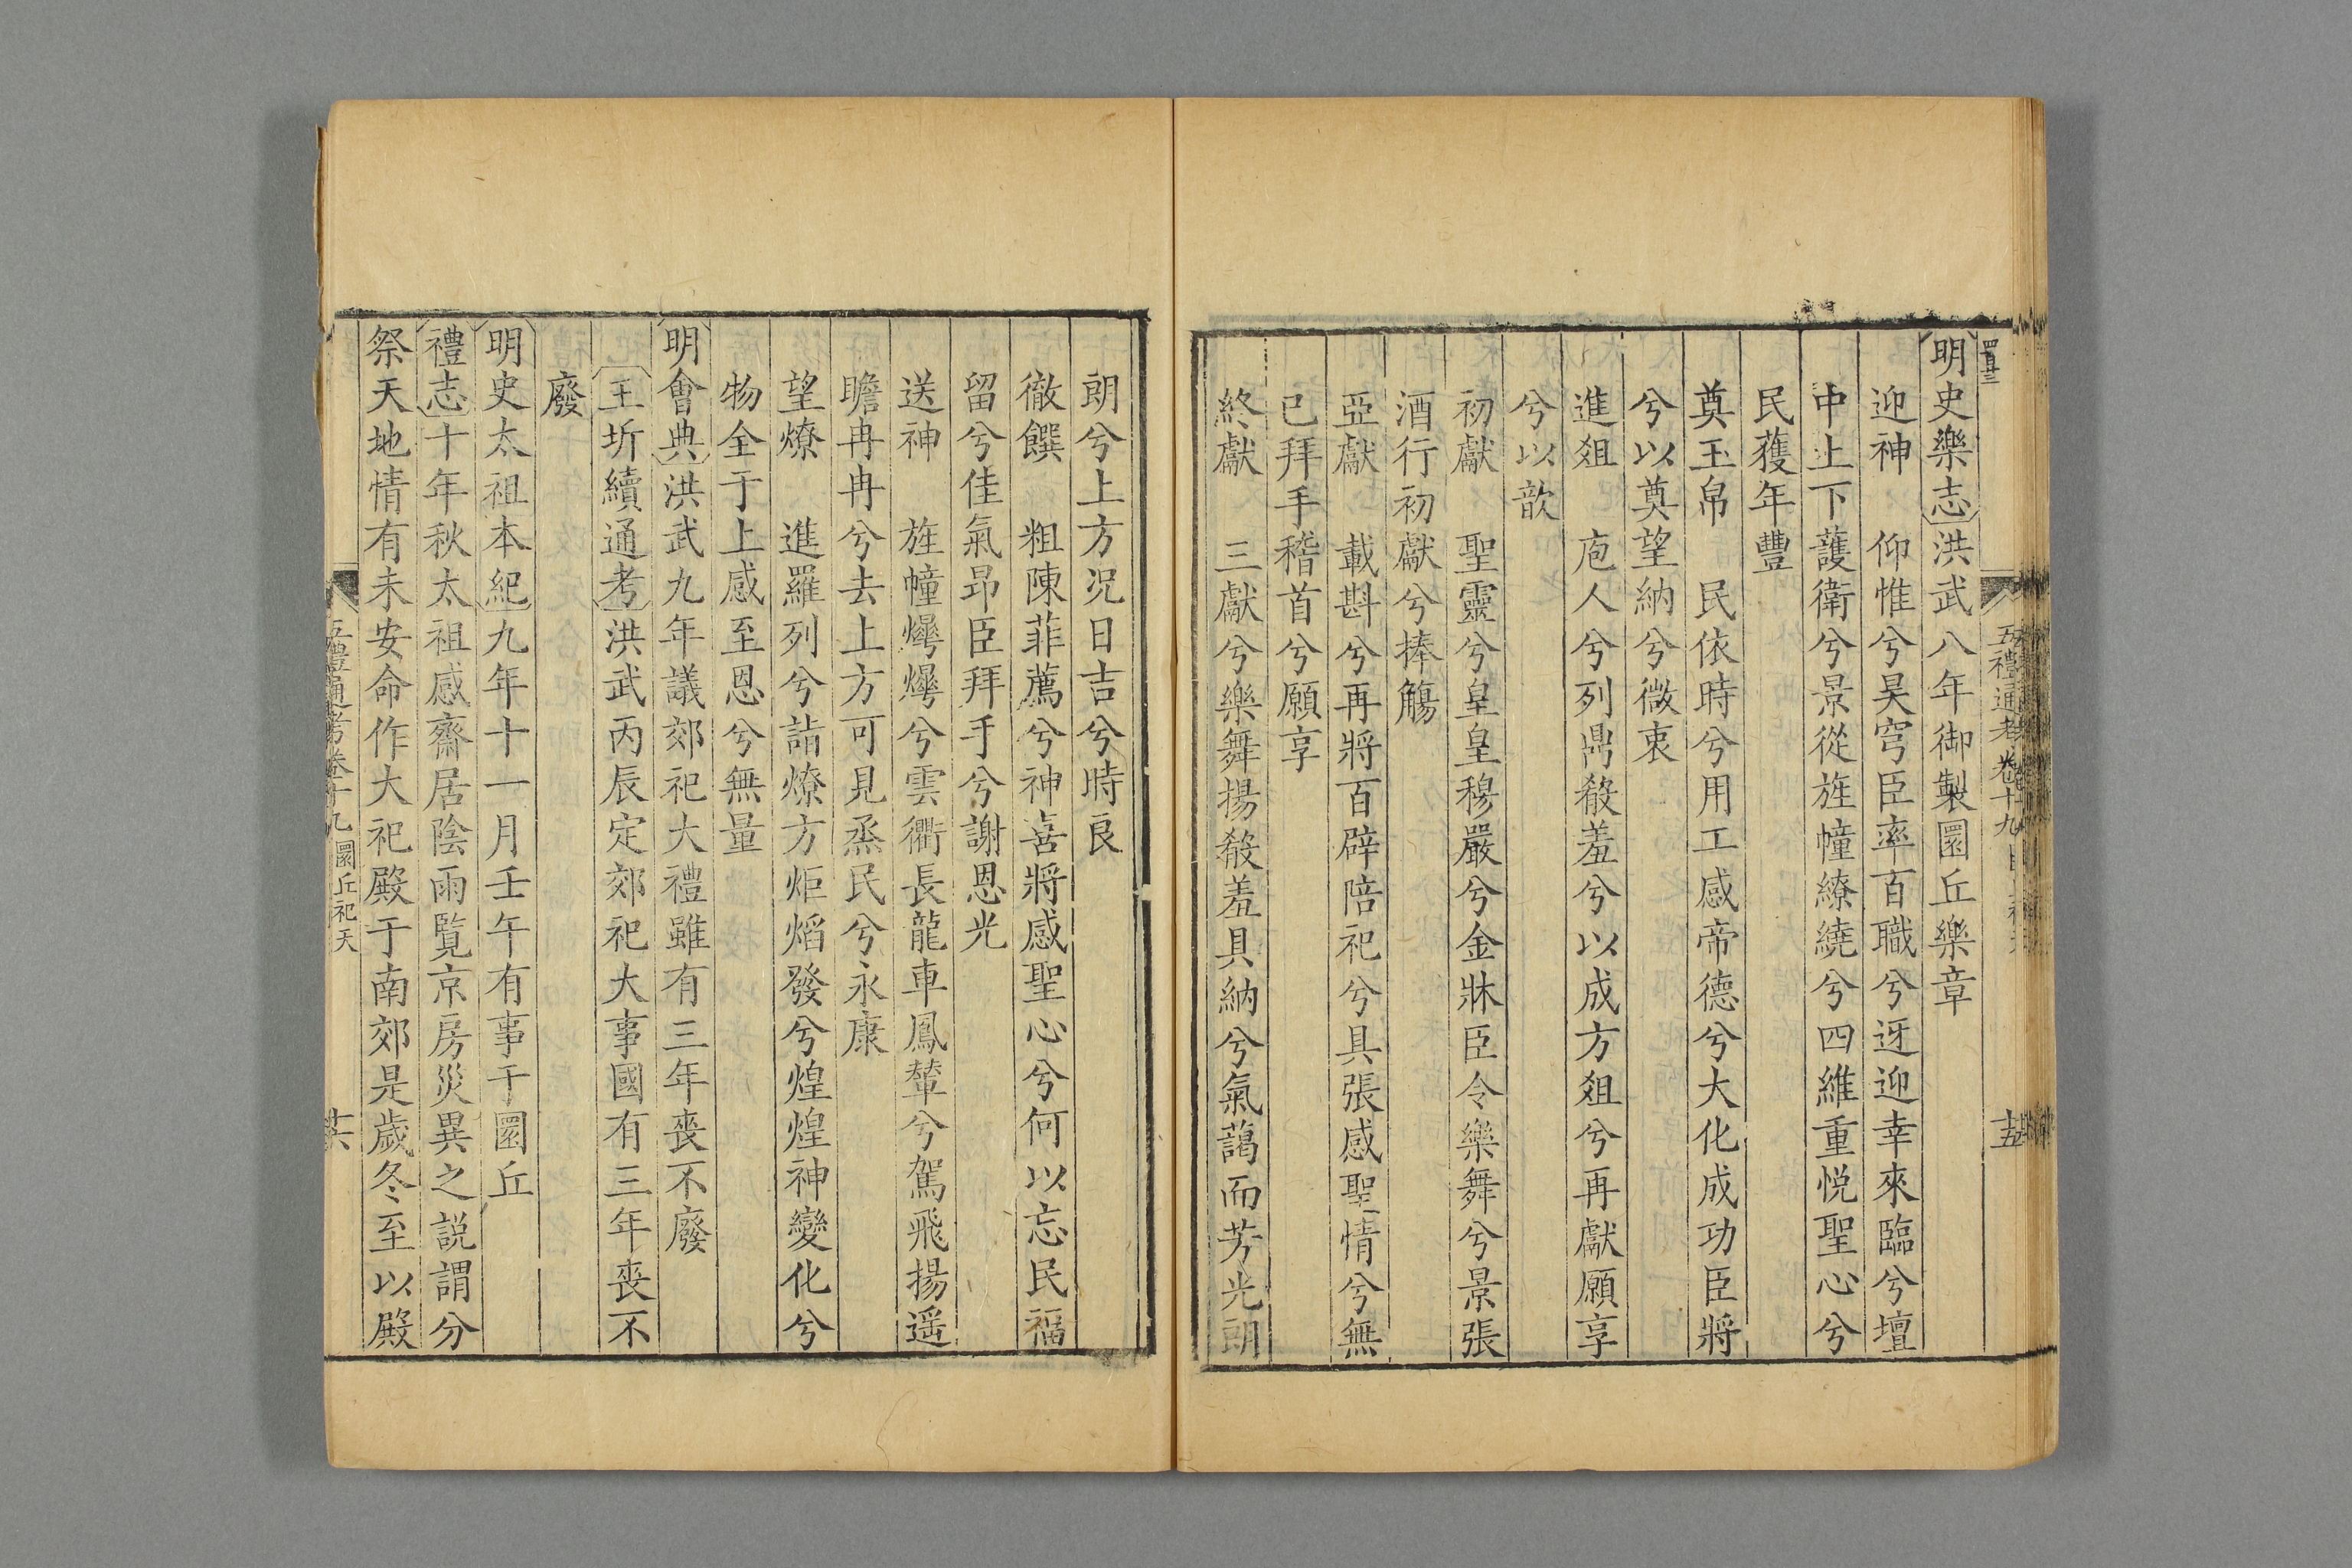 五禮通考 卷十九
十五
明史樂志洪武八年御製圜丘樂章
迎神　仰惟兮昊穹臣率百職兮迓迎幸來臨兮壇
中上下護衛兮景從旌幢繚繞兮四維重悅聖心兮
民獲年豐
奠玉帛　民依時兮用工感帝德兮大化成功臣將
兮以奠望納兮微衷
進俎　庖人兮列鼎殽羞兮以成方俎兮再獻願享
兮以歆
初獻　聖靈兮皇皇穆嚴兮金牀臣令樂舞兮景張
酒行初獻兮捧觴
亞獻　載斟兮再將百辟陪祀兮具張感聖情兮無
已拜手稽首兮願享
終獻　三獻兮樂舞揚殽羞具納兮氣藹而芳光朗
朗兮上方況日吉兮時良
徹饌　粗陳菲薦兮神喜將感聖心兮何以忘民福
留兮佳氣昂臣拜手兮謝恩光
送神　旌幢燁燁兮雲衢長龍車鳳輦兮駕飛揚遥
瞻冉冉兮去上方可見烝民兮永康
望燎　進羅列兮詣燎方炬焰發兮煌煌神變化兮
物全于上感至恩兮無量
明會典洪武九年議郊祀大禮雖有三年喪不廢
王圻續通考洪武丙辰定郊祀大事國有三年喪不
廢
明史太祖本紀九年十一月壬午有事于圜丘
禮志十年秋太祖感齋居陰雨覧京房災異之説謂分
祭天地情有未安命作大祀殿于南郊是歲冬至以殿
五禮通考卷十九圜丘祀天
十六